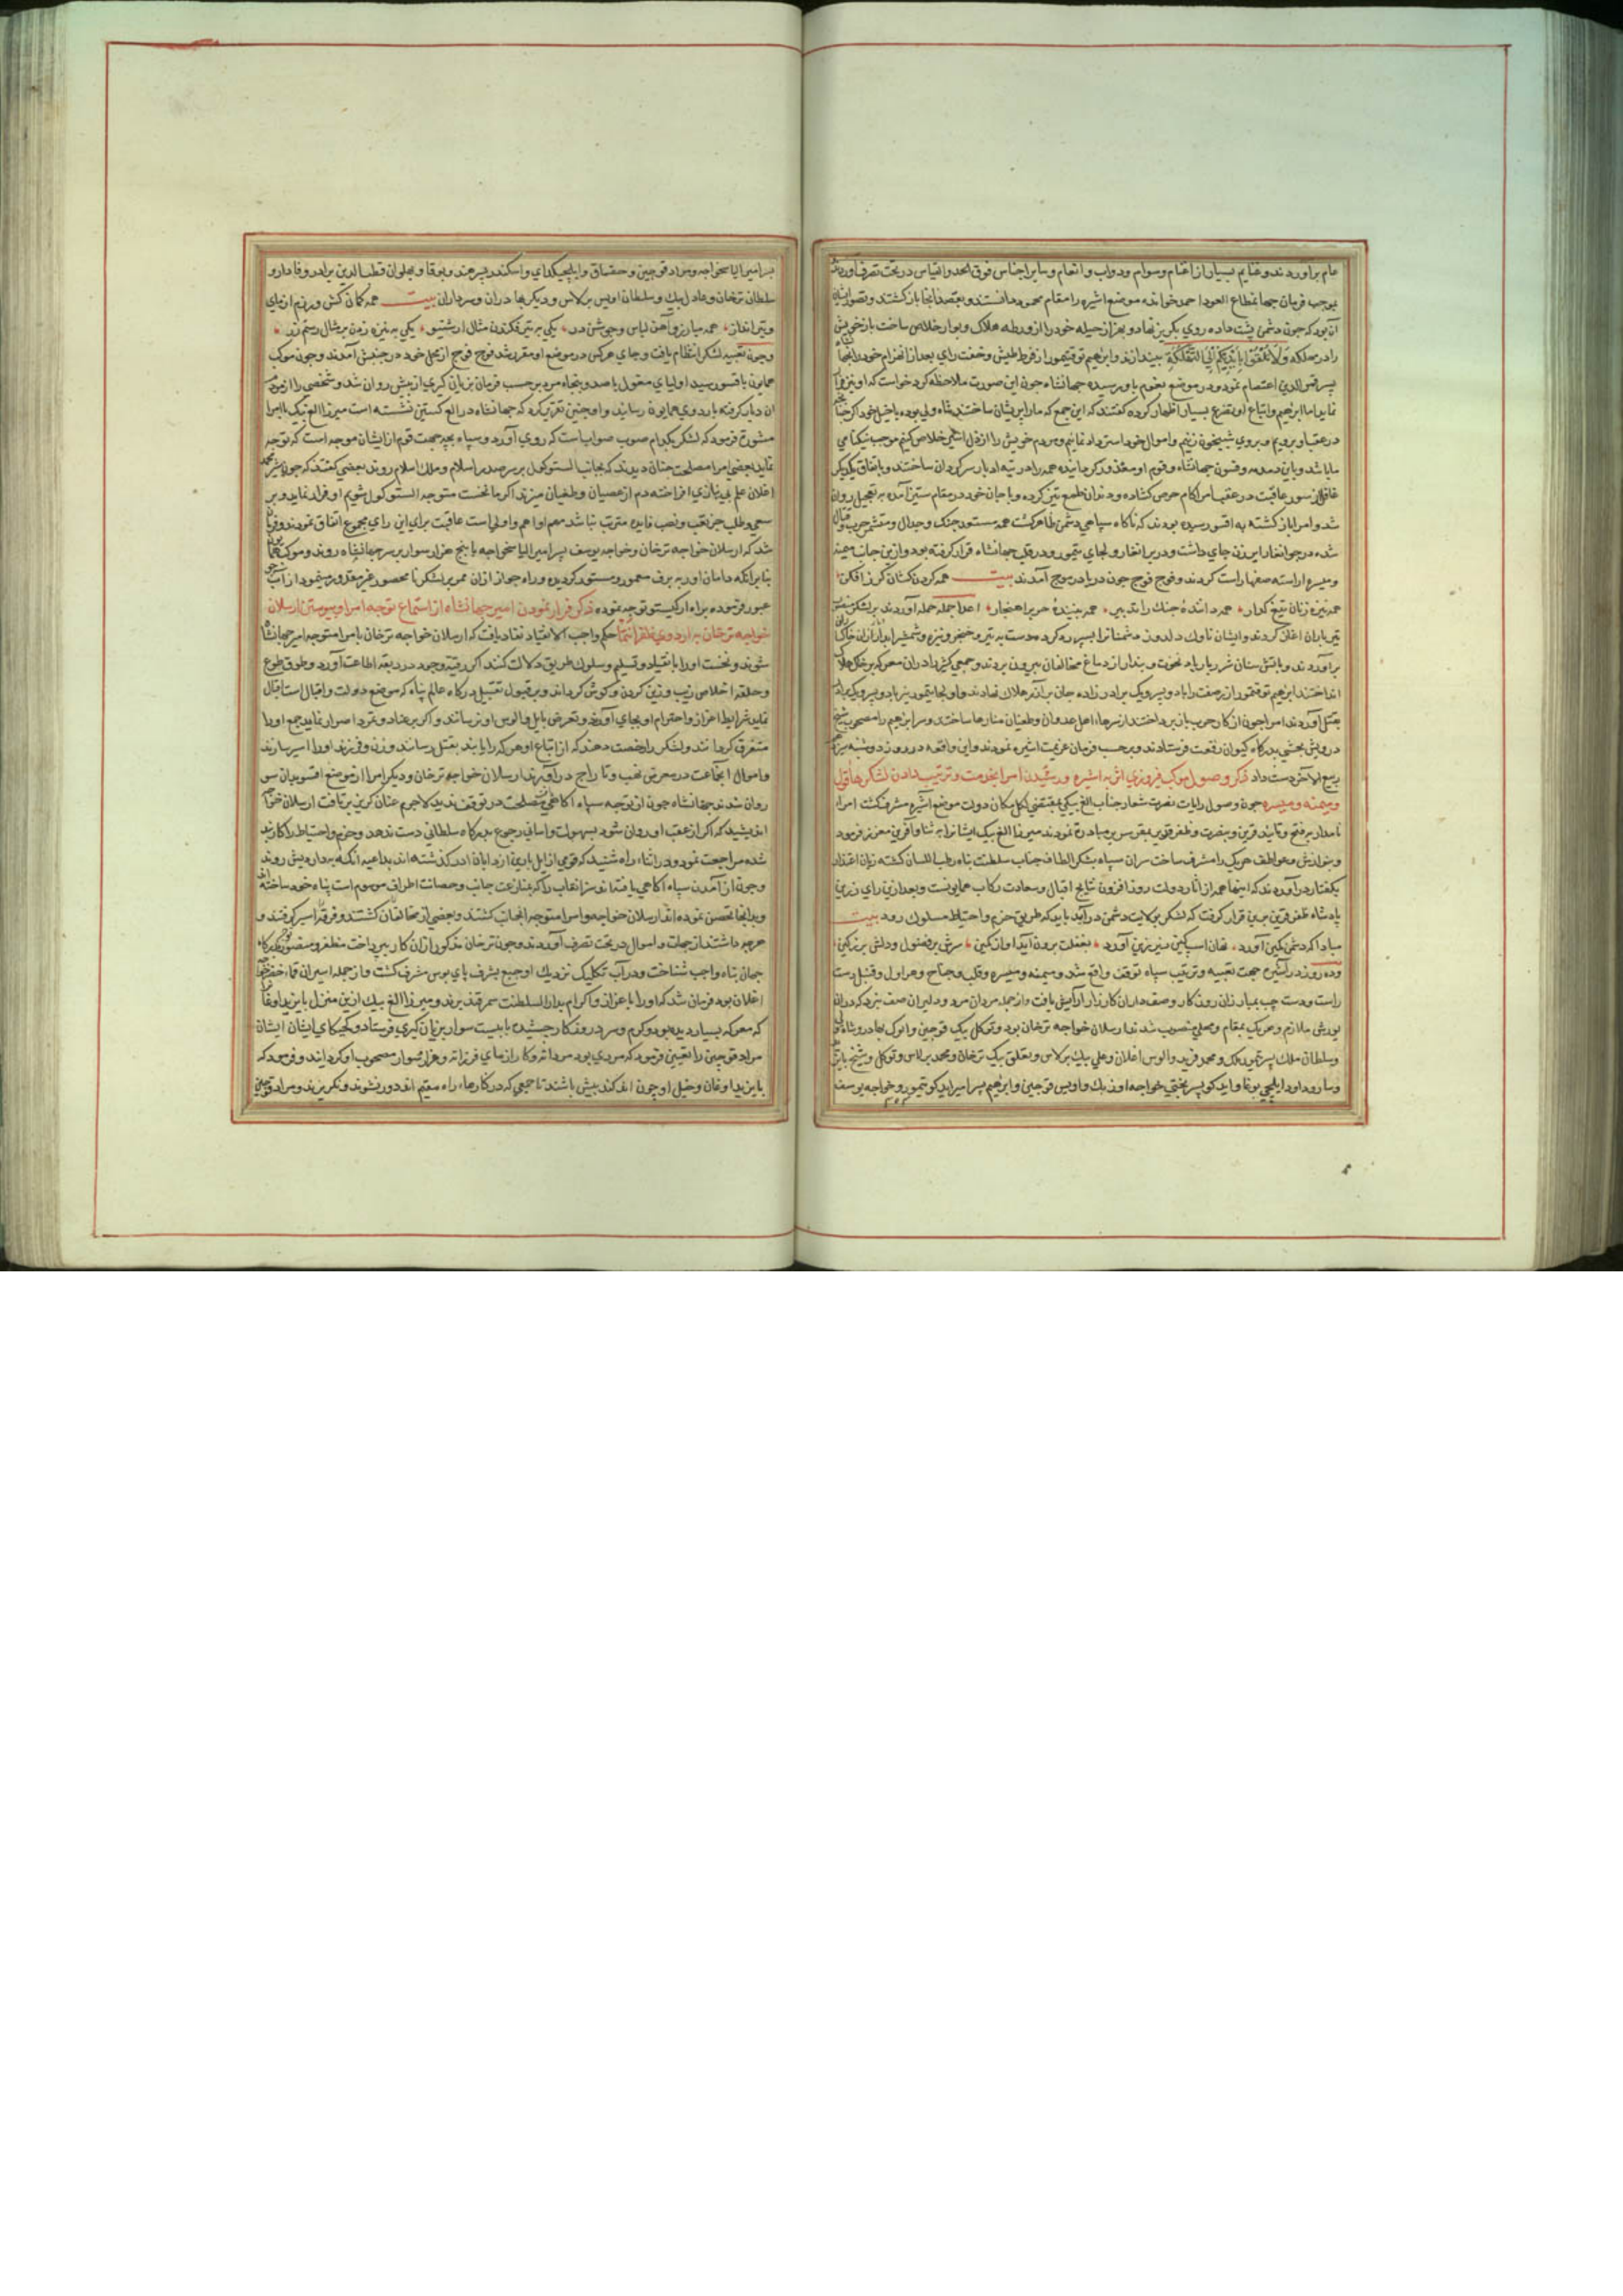 عام برآوردند و غنایم بسیار از اغنام و سوام و دواب و انعام و سایر اجناس فوق الحد و القیاس در تحت تصرف آوردند
بموجب فرمان جهانمطاع العود احمد خوانده موضع اشیره را مقام محمود دانستند و بقصد آنجا بازگشتند و تصور
آن بود که چون دشمن پشت داده روی بگریز نهاد و بهزار حیله خود را از ورطه هلاک و بوار خلاص ساخت باز خویش
را در مهلکه وَلَا تُلْقُوا بِأَيْدِيكُمْ إِلَى التَّهْلُكَةِ بیندازند و ابرهیم توقتیمور از فرط طیش و خفت رای بعد از انهزام خود را
پسر قمرالدین اعتصام نمود و در موضع باو رسیده جهانشاه چون این صورت ملاحظه کرد خواست که او نیز
نماید اما ابرهیم و اتباع او تضرع بسیار اظهار کرده گفتند که این جمع که ما را پریشان ساختند
در عقب او برویم و بروی شبیخون زنیم و اموال خود استرداد نمائیم و مردم خویش را از ذل خلاص کنیم موجب نیکنامی
ما باشد و باین دمدمه و فسون جهانشاه و قوم او سرگردان ساختند و باتفاق یکدیگر
غافل از سور عاقبت در عقب امرا کام حرص گشاده و دندان طمع تیز کرده و با جان خود در مقام ستیز آمده به تعجیل روان
شد و امرا باز گشته به اقسو رسیده بودند که ناگاه سپاهی دشمن ظاهر گشت همه مستعد جنک و جدال
شده در جوانغار جای داشت و در برانغار و در قلب جهانشاه قرار گرفته بود و ازین جانب میمنه
و میسره آراسته صفها راست کردند و فوج فوج چون دریا در موج آمدند بیت همه گردن کشان گرز افکن
همه نیزه زنان تیغ گذار همه داننده جنک را تدبیر همه بیننده حرب را هنجار اعدا جمله حمله آوردند بر لشکر
تیرباران اغاز کردند و ایشان ناوک دلدوز دشمنانرا سپر ره کرده دست به تیر و خنجر و نیزه و شمشیر
برآوردند و باتش سنان شرربار باد نخوت و پندار از دماغ مخالفان بیرون بردند و جمعی کثیر را در ان معرکه بر خاک هلاک
انداختند ابرهیم توقتمور از پسر و یک برادرزاده جان بر آن سر هلاک نهادند
بقتل آوردند امرا چون از کار حرب باز پرداختند از سرهاء اهل عدوان و طغیان منارها ساختند و سر ابرهیم را مصحوب شیخ
درویش بخشی بدرگاه کیوان رفعت فرستادند و برحسب فرمان عزیمت اشیره نمودند و این واقعه در روز دوشنبه
ربیع الاخر دست داد ذکر وصول موکب فیروزی اثر به اشیره و رسیدن امرا بخدمت و ترتیب دادن لشکرها قول
و میمنه و میسره چون وصول رایات نصرت شعار جناب الغ بیکی موضع اشیره مشرف گشت امراء
نامدار بر فتح و تایید قرین و بنصرت و ظفر قوین مبادرة نمودند میرزا الغ بیک ایشانرا به ثنا و آفرین معزز فرمود
و بنوازش و عواطف هریک را مشرف ساخت سران سپاه بشکر الطاف جناب سلطنت پناه رطب اللسان گشته زبان اعتذار
بگفتار درآوردند که اینها همه از اثار دولت روزافزون نتایج اقبال و سعادت رکاب همایونست و بعد ازین رای رزین
پادشاه ظفر قرین برین قرار گرفت که لشکر بولایت دشمن درآید باید که طریق حزم و احتیاط مسلوک رود بیت
مبادا که دشمن کمین آورد نهان اسپ کین زیر زین آورد بغفلت برون آید از کمین سرش پر فضول و دلش پر ز کین
و ده روز در اشیره جهت تعبیه و ترتیب سپاه توقف واقع شد و میمنه و میسره و قلب و جناح و هراول و قنبل دست
راست و دست چپ بمبارزان روزکار و صفداران کارزار آرایش یافت و از جمله مردان مرد و دلیران صف نبرد که در ان
یورش ملازم و هریک بمقام و محلی منصوب شدند ارسلان خواجه ترخان بود و توکل بیک قوجین و انوک بهادر و
و سلطان ملک پسر تیمور ملک و محمود فرید و الوس اغلان و علی بیک برلاس و تعلق بیک ترخان و محمد برلاس و توکل و شیخ
و ساروداود ایلچی بوغا و ایدکو پسر بختی خواجه اوزبک و اویس قوجین و ابرهیم پسر امیر ایدکو تیمور و خواجه یوسف
پسر امیر الیاس خواجه و مراد قوجین و خفقاق و ایلچیکدای و اسکندر پسر هند و بوقا و پهلوان قطب الدین برادر وفادار و
سلطان ترخان و عادل بیک و سلطان اویس برلاس و دیگر بهادران و سرداران بیت همه کمان کش و رزم ازمای
و تیر انداز همه مبارز و آهن لباس و جوشن در یکی به تیر فکندن مثال ارشتیو یکی به نیزه زدن بر شال رستم زر
و چون تعبیه لشکر انتظام یافت و جای هرکس در موضع او مقرر شد فوج فوج از محل خود در جنبش آمدند و چون موکب
همایون باقسو رسید اولیای مغول با صد و پنجاه مرد برحسب فرمان بزبان گیری از پیش روان شد و شخصی را از مردم
ان دیار گرفته باردوی همایون رسانید و او چنین تقریر کرد که جهانشاه در الغ کستین نشسته است میرزا الغ بیک با امرا
مشورة فرمود که لشکر بکدام صوب صواب است که روی آورد و سپاه بچه جهت قوم از ایشان موجه است که توجه
نماید بعضی امرا مصلحت چنان دیدند که بجانب الستوکول بر سر صدر اسلام و ملک اسلام روند بعضی گفتند که چون شیر محمد
اغلان علم بی نیازی افراخته دم از عصیان و طغیان میزند اگر ما نخست متوجه الستوکول شویم او فرار نماید و بر
سعی و طلب جز تعب و نصب فایده مترتب نباشد مهم او اهم و اولی است عاقبت برای این رای مجموع اتفاق نمودند و فرمان
شد که ارسلان خواجه ترخان و خواجه یوسف پسر امیر الیاس خواجه با پنج هزار سوار بر سر جهانشاه روند و موکب همایون
بنابرانکه دامان اور به برف معمور و مستور گردیده و راه جواز ازان ممر بر لشکر نا محصور غیر مقدور مینمود از آب
عبور فرموده براه ارکیستو توجه نموده ذکر فرار نمودن امیر جهانشاه از استماع توجه امرا و پیوستن ارسلان
خواجه ترخان به اردوی ظفر انتما حکم واجب الانقیاد نفاد یافت که ارسلان خواجه ترخان با امرا متوجه امیر جهانشاه
شوند و نخست او را بانقیاد و تسلیم و سلوک طریق دلالت کنند اگر رقبه وجود در ربقه اطاعت آورد و طوق طوع
و حلقه اخلاص زیب و زین گردن و گوش گرداند و بر قبول تقبیل درگاه عالم پناه که موضع دولت و اقبال است اقبال
نماید شرایط اعزاز و احترام او بجای آورند و تعرض بایل و الوس او نرسانند و اگر بر عناد و تمرد اصرار نماید جمع او را
متفرق گردانند و لشکر را رخصت دهند که از اتباع او هر کرا یابند بقتل رسانند و زن و فرزند او را اسیر سازند
و اموال آنجماعت در معرض نهب و تاراج درآورند ارسلان خواجه ترخان و دیگر امرا از موضع اقسو بدان سو
روان شدند جهانشاه چون از توجه سپاه اکاهی یافت مصلحت در توقف ندید لاجرم عنان گریز برتافت ارسلان خواجه
اندیشید که اگر از عقب او روان شود بسهولت و اسانی رجوع بدرگاه سلطانی دست ندهد و حزم و احتیاط را کاربند
شده مراجعت نمود و در اثناء راه شنید که قومی از ایل بارین از دابان اور گذشته اند بداعیه انکه به دارویش روند
و چون از آمدن سپاه اکاهی یافته اند که بمناعت جانب و حصانت اطراف موسوم است پناه خود ساخته
و بدانجا تحصن نموده اند ارسلان خواجه و امرا متوجه آنجانب گشتند و بعضی از مخالفان کشتند و فرقه اسیر گرفتند و
هرچه داشتند از جهات و اموال در تحت تصرف آوردند و چون ترخان مذکور ازان کار بپرداخت مظفر و منصور توجه بدرگاه
جهان پناه واجب شناخت و در آب تکلیک نزدیک اوجیع بشرف پای بوس مشرف گشت و از جمله اسیران
اغلان بود فرمان شد که او را باعزاز و اکرام بدار السلطنت سمرقند برند و میرزا الغ بیک ازین منزل بایزید اوقان
که معرکه بسیار دیده بود و گرم و سرد روزگار چشیده با بیست سوار بزبان گیری فرستاد و کجیکای ایشان
مراد قوجین را تعیین فرمود که مردی بود مردانه و کار ازمای فرزانه و هزار سوار مصحوب او گردانید و فرمود که
بایزید اوغان و خیل او چون اندکند بیش باشند تا جمعی که در کارها راه مقیم اند دور نشوند و نگریزند و مراد قوجین